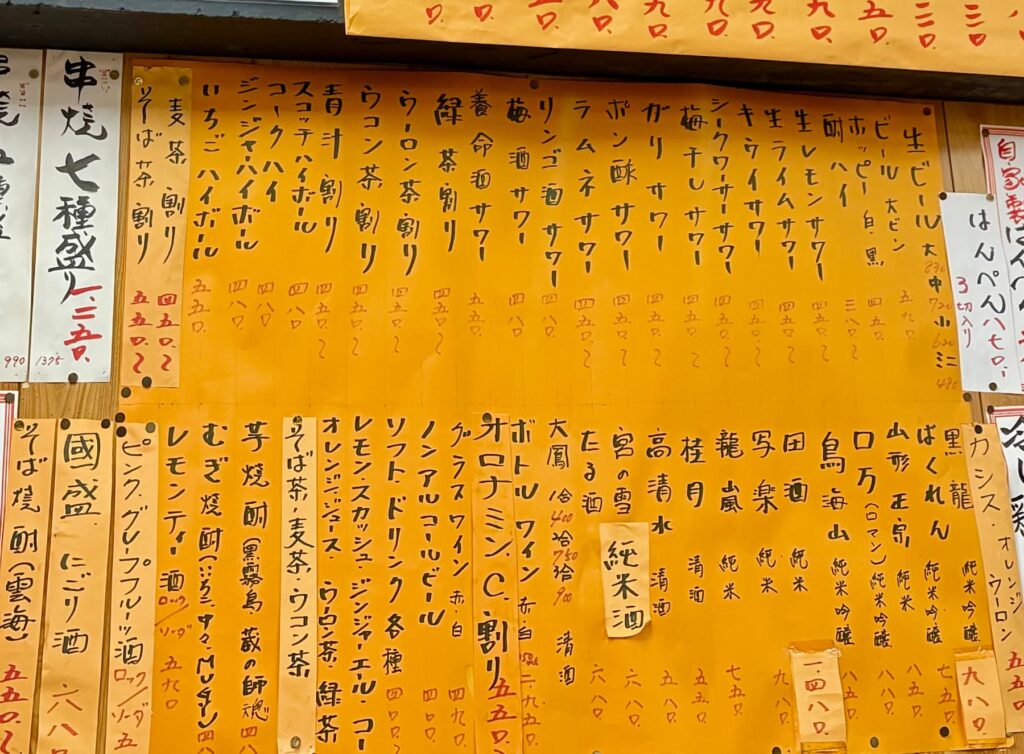 自家製はんぺん
はんぺん 八七〇
3切入り
生ビール 大830 中720 小620 ミニ480
ビール 大ビン 五九〇.
ホッピー 白・黒 四五〇.
酎ハイ 三八〇.
生レモンサワー 四五〇.〜
生ライムサワー 四五〇.〜
キウイサワー 四五〇.〜
シークワーサーサワー 四五〇.〜
梅干しサワー 四五〇.〜
ガリサワー 四五〇.〜
ポン酢サワー 四八〇.
ラムネサワー 四五〇.〜
リンゴ酒サワー 四八〇.
梅酒サワー 四八〇.
養命酒サワー 五五〇.
緑茶割り 四五〇.
ウーロン茶割り 四五〇.
ウコン茶割り 四五〇.〜
青汁割り 四五〇.〜
スコッチハイボール 四八〇.
コークハイ 四八〇.
ジンジャーハイボール 四八〇.
いちごハイボール 五五〇.
麦茶割り 四五〇.〜
そば茶割り 五五〇.〜
串焼七種盛り 一、二五〇.
1375
990
カシス・オレンジ ウーロン 五五〇.
黒龍 純米吟醸 九八〇.
ばくれん 純米吟醸 七五〇.
山形正宗 純米 八五〇.
ロ万(ロマン) 純米吟醸
鳥海山 純米吟醸 八五〇.
田酒 純米 一四八〇.
写楽 純米 九八〇.
龍嵐 純米 七五〇.
桂月 清酒 五五〇.
高清水 清酒 六八〇.
宮の雪 純米酒 六八〇.
たる酒 六八〇.
大鳳 清酒
ボトルワイン 赤・白 二九五〇.
オロナミン.C.割り 五五〇.
グラスワイン 赤 白 四九〇.
ノンアルコールビール 四四〇.
ソフト.ドリンク各種 四四〇.〜
レモン.スカッシュ・ジンジャーエール・コー
オレンジジュース ウーロン茶・緑茶
そば茶・麦茶・ウコン茶
芋焼酎(黒霧島 蔵の師魂) 四八
むぎ焼酎
レモンティー酒 ロック/ソーダ 五九〇
ピンク.グレープフルーツ酒 ロック/ソーダ 五
國盛 にごり酒 六八〇.
そば焼酎(雲海) 五五〇.〜